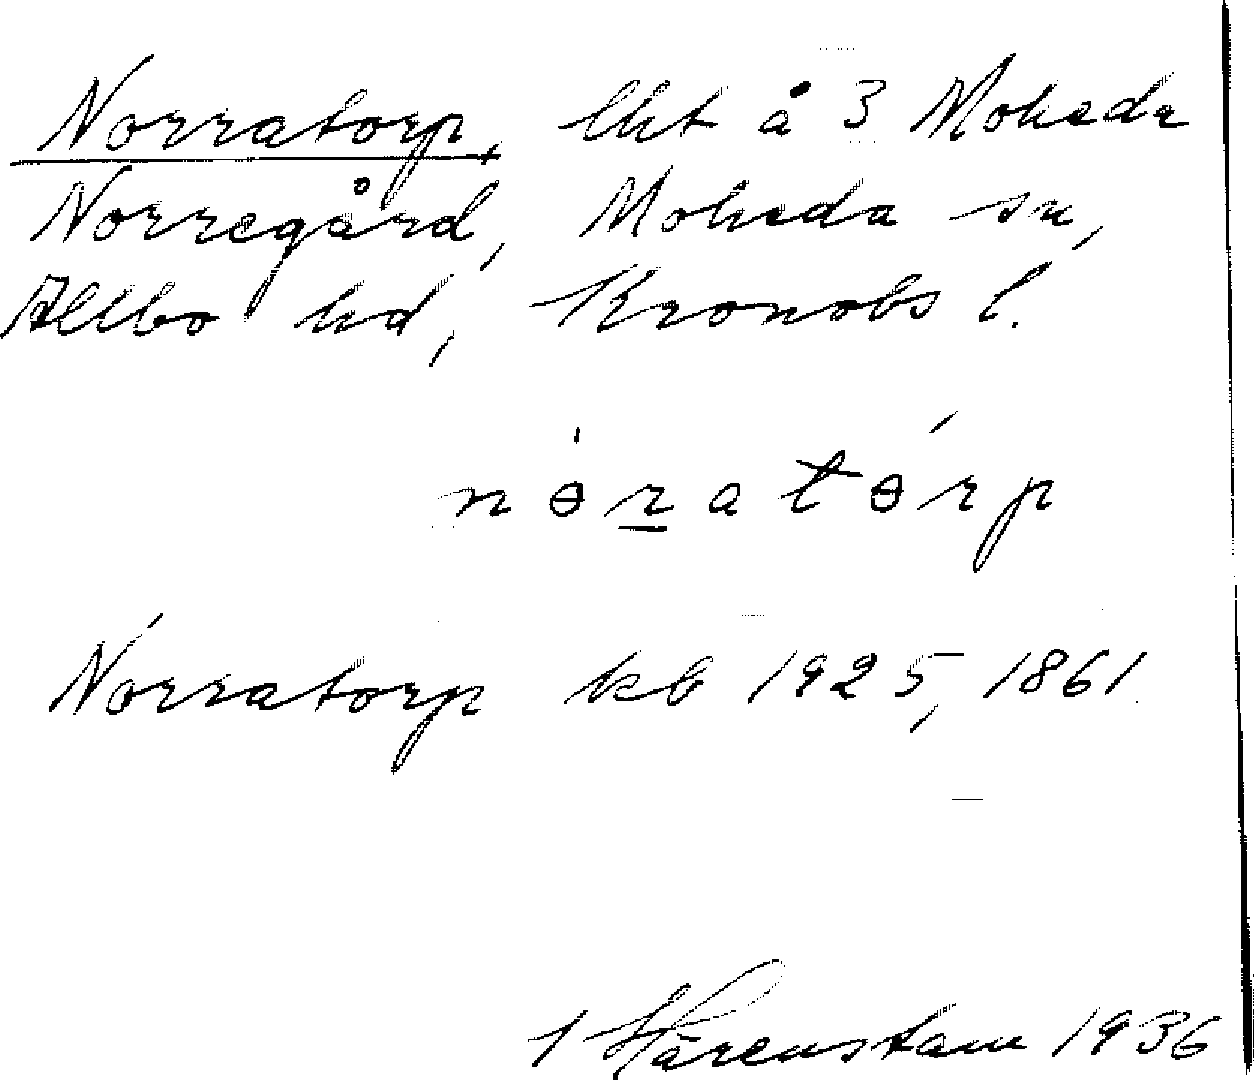 Norratorp, lht å 3 Moheda
Norregård, Moheda sn,
Allbo hd, Kronobs l.
nɵ̀ratɵ́rp
Norratorp kb 1925, 1861
Härenstam 1936